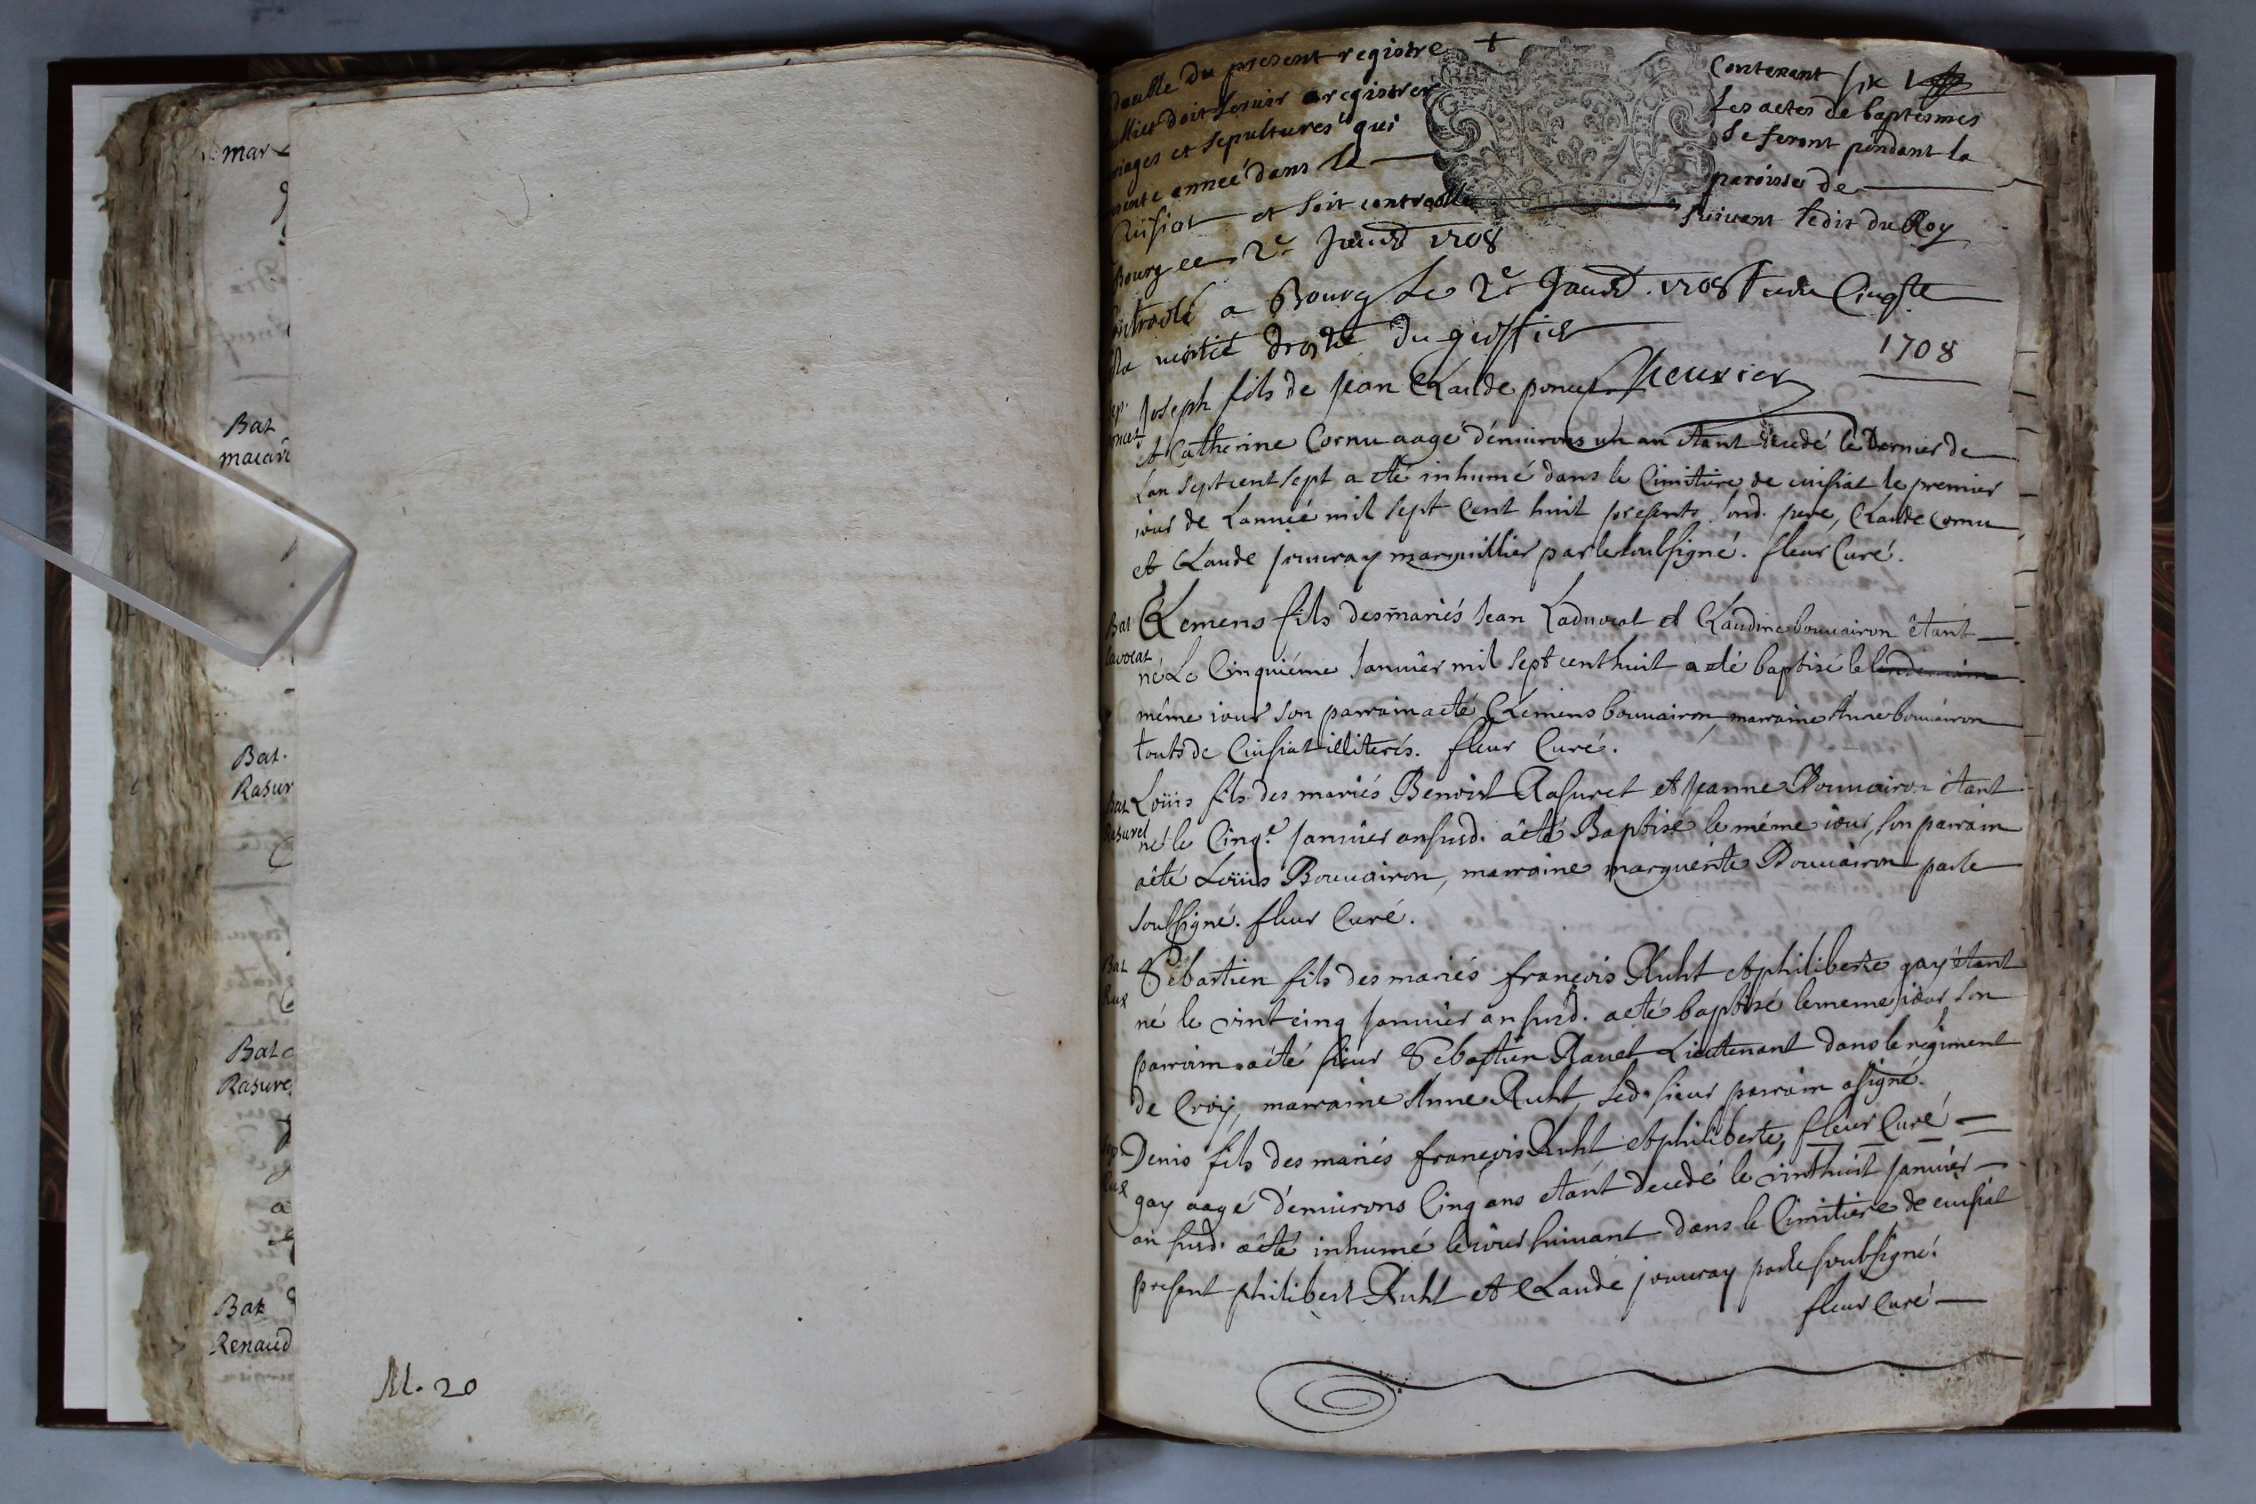 mar
Bat
maiar
Bat.
Rasur
Bat
Rasure
Bat
Renaud
M. 20
+
double du present registre Contenant six
doit servir a registrer Les actes de baptesmes
riages et sepultures qui se feront pendant la
sente anneé dans la paroisse de
Cuisiat et soit controollé suivant ledit du Roy
Bourg ce 2e Janvr 1708
Controolé a Bourg Le 2e Janvr 1708
la moitié droite du greffier
1708
Sep.
poncet
Joseph fils de Jean Claude poncet
et Catherine Cornu aagé d'environs un an étant decedé le dernier de
Lan sept cent sept a eté inhumé dans le Cimitiere de cuisiat le premier
iour de Lanneé mil sept cent huit presents sond. pere, Claude cornu
et Claude jouvray marguillier par le soulsigné. fleur Curé.
Bat
Lavocat
Clemens fils des mariés Jean Laduocat et Claudine bouvairon étant
né Le Cinquiéme Januier mil sept cent huit a eté baptisé le lendemain
méme iour son parrain a eté Clemens bouvairon, marraine Anne bouvairon
touts de Cuisiat illiterés. fleur Curé.
Bat
Rasurel
Loüis fils des mariés Benoist Rasurel et Jeanne Bouvairon étant
né le Cinq.e Januier an susd. a eté Baptisé le méme iour, son parrain
a eté Loüis Bouvairon, marraine marguerite Bouvairon par le
soulsigné. fleur Curé.
Bat
Rux
Sebastien fils des mariés françois Ruht et philiberte gay étant
né le vint cinq Januier an susd. a eté baptisé le meme iour son
parrain a eté sieur Sebastien Ravet Lieutenant dans le régiment
de Croy, marraine Anne Ruht, led. sieur parrain a signé.
fleur Curé
Sep
Rux
Denis fils des mariés françois Ruht et philiberte
gay aagé d'environs Cinq ans étant decedé le vint huit Januier
an susd. a eté inhumé le iour suivant dans le Cimitiere de cuisiat
present philibert Ruht et Claude jouvray par le soubsigné.
fleur Curé